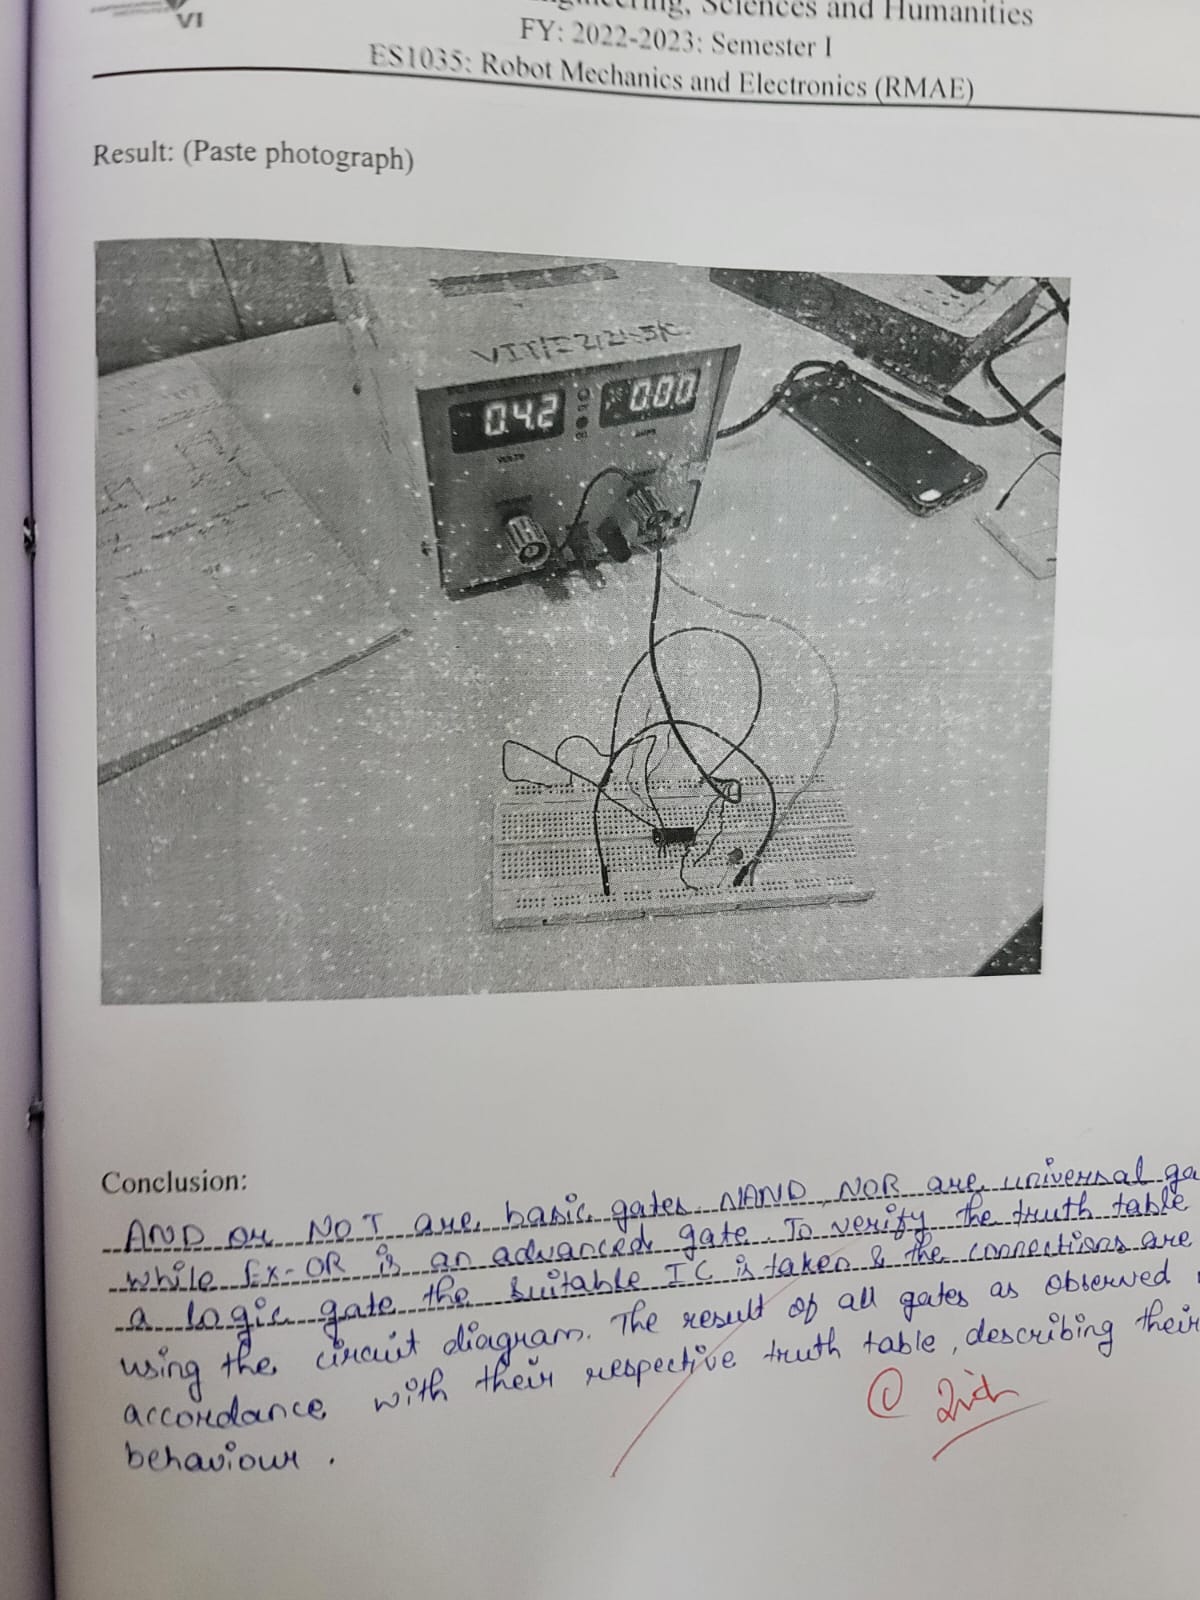 VI
Engineering, Sciences and Humanities
FY: 2022-2023: Semester I
ES1035: Robot Mechanics and Electronics (RMAE)
Result: (Paste photograph)
0.42
0.00
VOLTS
AMPS
Conclusion:
AND OR NOT are basic gates. NAND, NOR are universal ga
while Ex-OR is an advanced gate. To verify the truth table
a logic gate the suitable IC is taken & the connections are
using the circuit diagram. The result of all gates as observed
accordance with their respective truth table, describing their
behaviour.